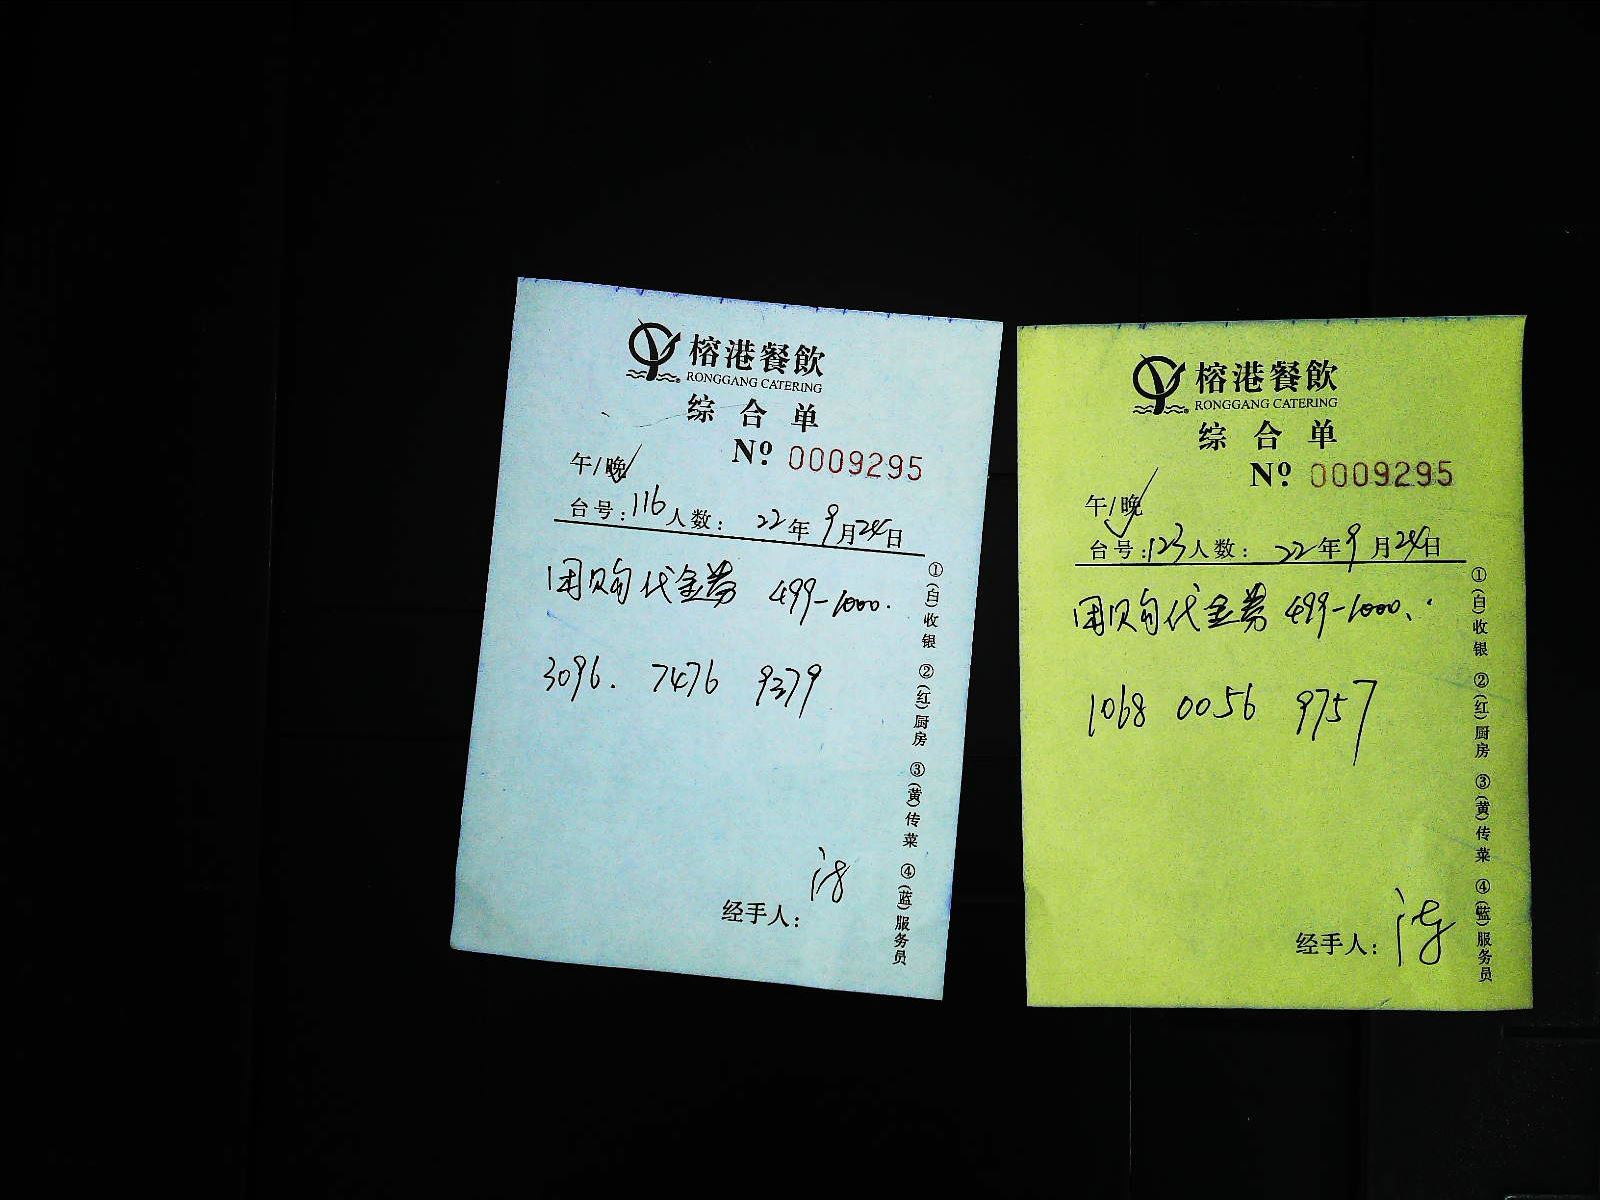 榕港餐飲
RONGGANG CATERING
综合单
Nº 0009295
午/晚
台号:116人数: 22年9月24日
团购代金券 499-1000.
3096. 7476 9379
①(白)收银 ②(红)厨房 ③(黄)传菜 ④(蓝)服务员
经手人:
榕港餐飲
RONGGANG CATERING
综合单
Nº 0009295
午/晚
台号:123人数: 22年9月24日
团购代金券 499-1000.
1068 0056 9757
①(白)收银 ②(红)厨房 ③(黄)传菜 ④(蓝)服务员
经手人: